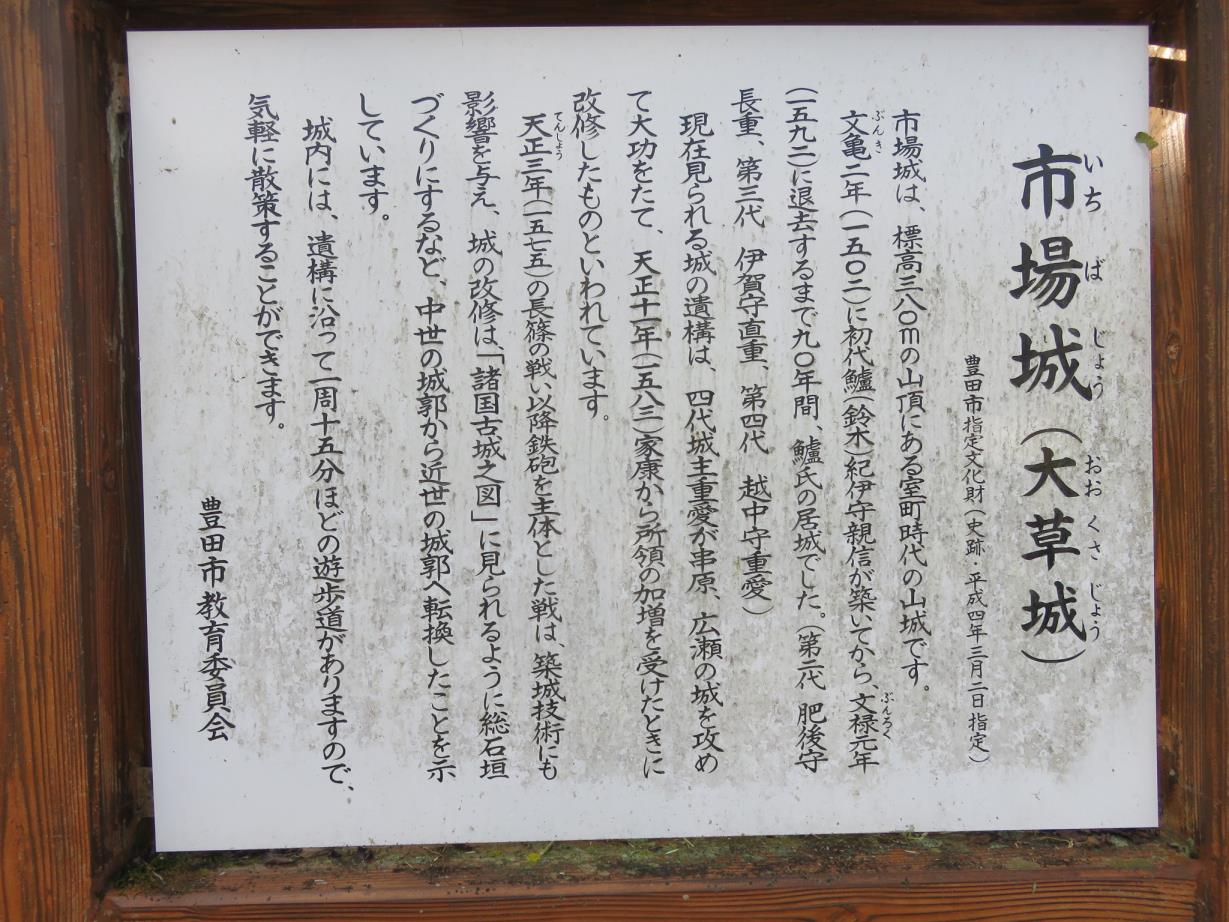 市場城（大草城）
いちばじょう おおくさじょう
豊田市指定文化財（史跡・平成四年三月二日指定）
市場城は、標高三八〇mの山頂にある室町時代の山城です。
文亀二年（一五〇二）に初代鱸（鈴木）紀伊守親信が築いてから、文禄元年
ぶんき ぶんろく
（一五九二）に退去するまで九〇年間、鱸氏の居城でした。（第二代 肥後守
長重、第三代 伊賀守直重、第四代 越中守重愛）
現在見られる城の遺構は、四代城主重愛が串原、広瀬の城を攻め
て大功をたて、天正十一年（一五八三）家康から所領の加増を受けたときに
改修したものといわれています。
天正三年（一五七五）の長篠の戦い以降鉄砲を主体とした戦は、築城技術にも
てんしょう
影響を与え、城の改修は、「諸国古城之図」に見られるように総石垣
づくりにするなど、中世の城郭から近世の城郭へ転換したことを示
しています。
城内には、遺構に沿って一周十五分ほどの遊歩道がありますので、
気軽に散策することができます。
豊田市教育委員会